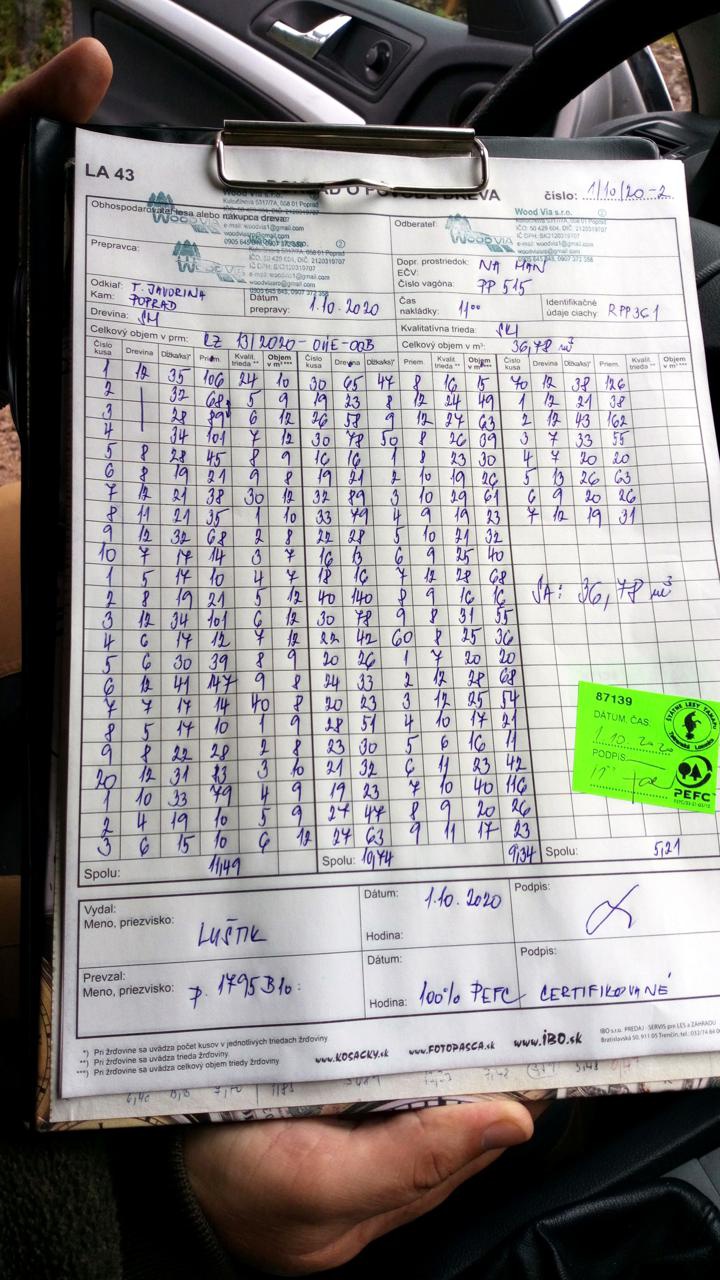 LA 43
DOKLAD O PÔVODE DREVA
číslo: 1/10/20-2
Obhospodarovateľ lesa alebo nákupca dreva:
Wood Via s.r.o.
WOOD VIA
Odberateľ:
Wood Via s.r.o.
WOOD VIA
Prepravca:
WOOD VIA
Dopr. prostriedok: NA MAN
EČV:
Číslo vagóna: PP 515
Odkiaľ: T. JAVORINA
Kam: POPRAD
Dátum prepravy: 1.10.2020
Čas nakládky: 11⁰⁰
Identifikačné údaje ciachy: RPP361
Drevina: SM
Kvalitatívna trieda:
Celkový objem v prm: RZ 13/2020-011E-00B
Celkový objem v m³: 36,78 m³
Číslo kusa Drevina Dĺžka/ks)* Priem. Kvalit. trieda ** Objem v m³ *** Číslo kusa Drevina Dĺžka/ks)* Priem. Kvalit. trieda ** Objem v m³ *** Číslo kusa Drevina Dĺžka/ks)* Priem. Kvalit. trieda ** Objem v m³ ***
1 12 35 106 24 10 30 65 47 8 16 15 70 12 38 126
2 32 68 5 9 19 23 8 12 24 49 1 12 21 38
3 28 89 6 12 26 58 9 12 27 63 2 12 43 162
4 34 101 7 12 30 78 50 8 26 39 3 7 33 55
5 8 28 45 8 9 16 16 1 8 23 30 4 7 20 20
6 8 19 21 9 8 19 21 2 10 19 26 5 13 26 63
7 12 21 38 30 12 32 89 3 10 29 61 6 9 20 26
8 11 21 35 1 10 33 79 4 9 19 23 7 12 19 31
9 12 32 68 2 8 22 28 5 10 21 32
10 7 17 14 3 7 16 13 6 9 25 40
1 5 17 10 4 7 18 16 7 12 28 68
2 8 19 21 5 12 40 140 8 9 16 16
SA: 36,78 m³
3 12 34 101 6 12 30 78 9 8 31 55
4 6 17 12 7 12 22 42 60 8 25 36
5 6 30 39 8 9 20 26 1 7 20 20
6 12 41 147 9 8 24 33 2 12 28 68
7 7 17 14 40 8 20 23 3 12 25 54
8 5 17 10 1 9 28 51 4 10 17 21
9 8 22 28 2 8 23 30 5 6 16 11
20 12 31 3 10 21 32 6 11 23 42
1 10 33 79 4 9 19 23 7 10 40 116
2 4 19 10 5 9 27 47 8 9 20 26
3 6 15 10 6 12 27 63 9 11 17 23
Spolu: 11,49 Spolu: 10,74 9,34 Spolu: 5,21
87139
DÁTUM, ČAS:
1.10.2020
PODPIS
ŠTÁTNE LESY TANAPU
PEFC
Vydal:
Meno, priezvisko: LUŠTIK
Dátum: 1.10.2020
Hodina:
Podpis:
Prevzal:
Meno, priezvisko: p. 1795B10:
Dátum:
Hodina: 100% PEFC CERTIFIKOVANÉ
Podpis:
*) Pri žrďovine sa uvádza počet kusov v jednotlivých triedach žrďoviny
**) Pri žrďovine sa uvádza trieda žrďoviny
***) Pri žrďovine sa uvádza celkový objem triedy žrďoviny
www.KOSACKY.sk www.FOTOPASCA.sk www.IBO.sk
IBO s.r.o. PREDAJ - SERVIS pre LES a ZÁHRADU
Bratislavská 50, 911 05 Trenčín